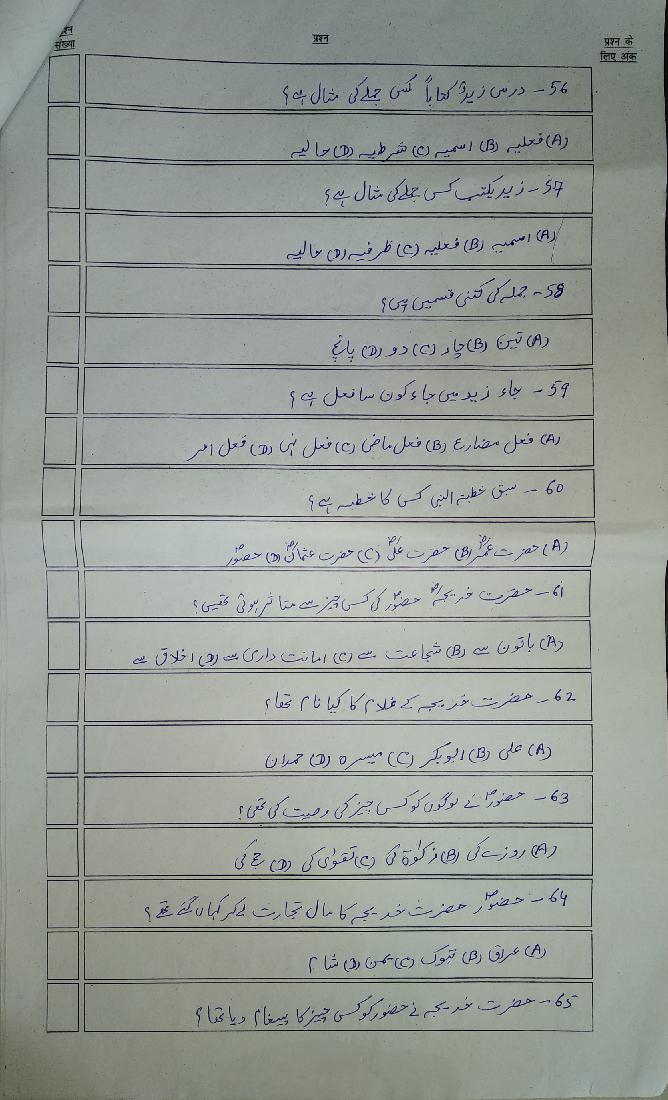 प्रश्न संख्या
प्रश्न
प्रश्न के लिए अंक
56- درس زیدٌ کتاباً کس جملے کی مثال ہے؟
(A) فعلیہ (B) اسمیہ (C) شرطیہ (D) حالیہ
57- زید یکتب کس جملے کی مثال ہے؟
(A) اسمیہ (B) فعلیہ (C) ظرفیہ (D) حالیہ
58- جملہ کی کتنی قسمیں ہیں؟
(A) تین (B) چار (C) دو (D) پانچ
59- جاء زید میں جاء کون سا فعل ہے؟
(A) فعل مضارع (B) فعل ماضی (C) فعل نہی (D) فعل امر
60- سبق خطبۃ النبی کس کا خطبہ ہے؟
(A) حضرت عمرؓ (B) حضرت علیؓ (C) حضرت عثمانؓ (D) حضورؐ
61- حضرت خدیجہؓ حضورؐ کی کس چیز سے متاثر ہوئی تھیں؟
(A) باتوں سے (B) شجاعت سے (C) امانت داری سے (D) اخلاق سے
62- حضرت خدیجہ کے غلام کا کیا نام تھا؟
(A) علی (B) ابوبکر (C) میسرہ (D) حمدان
63- حضورؐ نے لوگوں کو کس چیز کی وصیت کی تھی؟
(A) روزے کی (B) زکوٰۃ کی (C) تقویٰ کی (D) حج کی
64- حضورؐ حضرت خدیجہ کا مال تجارت لے کر کہاں گئے تھے؟
(A) عراق (B) تبوک (C) یمن (D) شام
65- حضرت خدیجہ نے حضور کو کس چیز کا پیغام دیا تھا؟